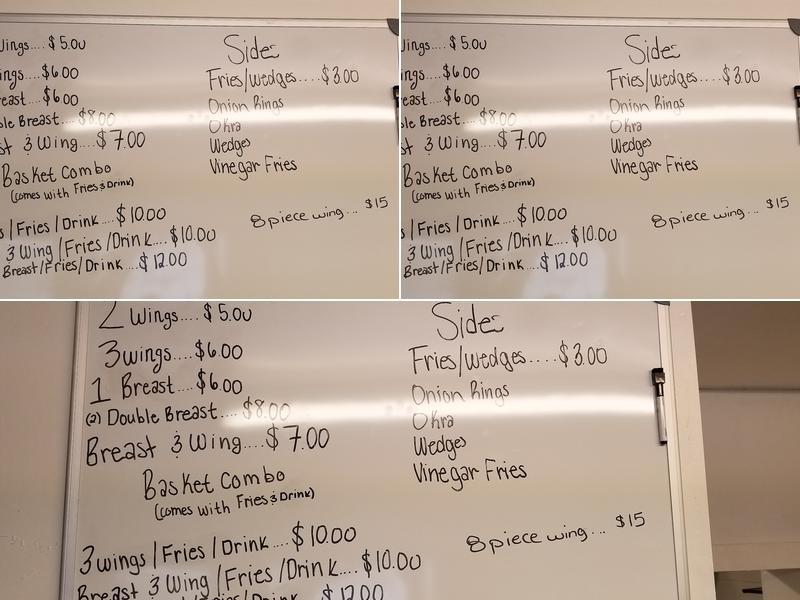 Wings.... $5.00
ings...$6.00
east...$6.00
le Breast.... $8.00
st & Wing....$7.00
Basket Combo
(comes with Fries & Drink)
s/Fries/Drink....$10.00
& Wing/Fries/Drink....$10.00
Breast/Fries/Drink....$12.00
Side
Fries/Wedges....$3.00
Onion Rings
Okra
Wedges
Vinegar Fries
8 piece wing... $15
Wings.... $5.00
ngs...$6.00
east...$6.00
le Breast.... $8.00
st & Wing....$7.00
Basket Combo
(comes with Fries & Drink)
/Fries/Drink....$10.00
& Wing/Fries/Drink....$10.00
Breast/Fries/Drink....$12.00
Side
Fries/Wedges....$3.00
Onion Rings
Okra
Wedges
Vinegar Fries
8 piece wing... $15
2 Wings.... $5.00
3 wings....$6.00
1 Breast....$6.00
(2) Double Breast.... $8.00
Breast & Wing....$7.00
Basket Combo
(comes with Fries & Drink)
3 wings/Fries/Drink....$10.00
Breast & Wing/Fries/Drink....$10.00
/Fries/Drink.... $12.00
Side
Fries/Wedges....$3.00
Onion Rings
Okra
Wedges
Vinegar Fries
8 piece wing... $15